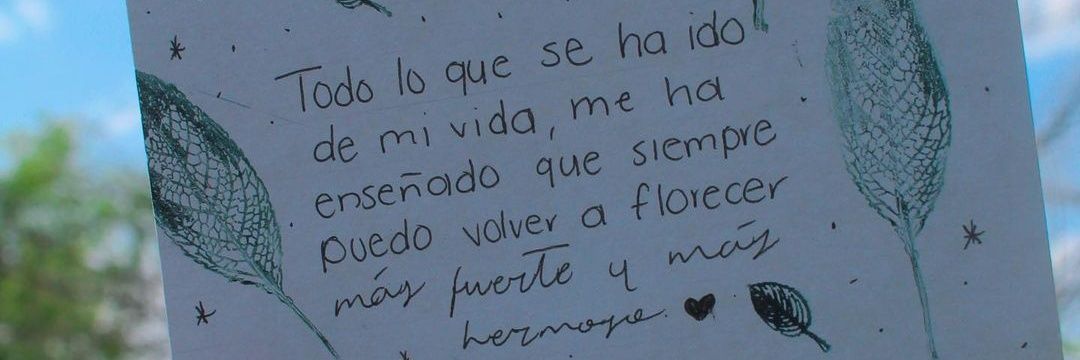 Todo lo que se ha ido
de mi vida, me ha
enseñado que siempre
puedo volver a florecer
más fuerte y más
hermosa.